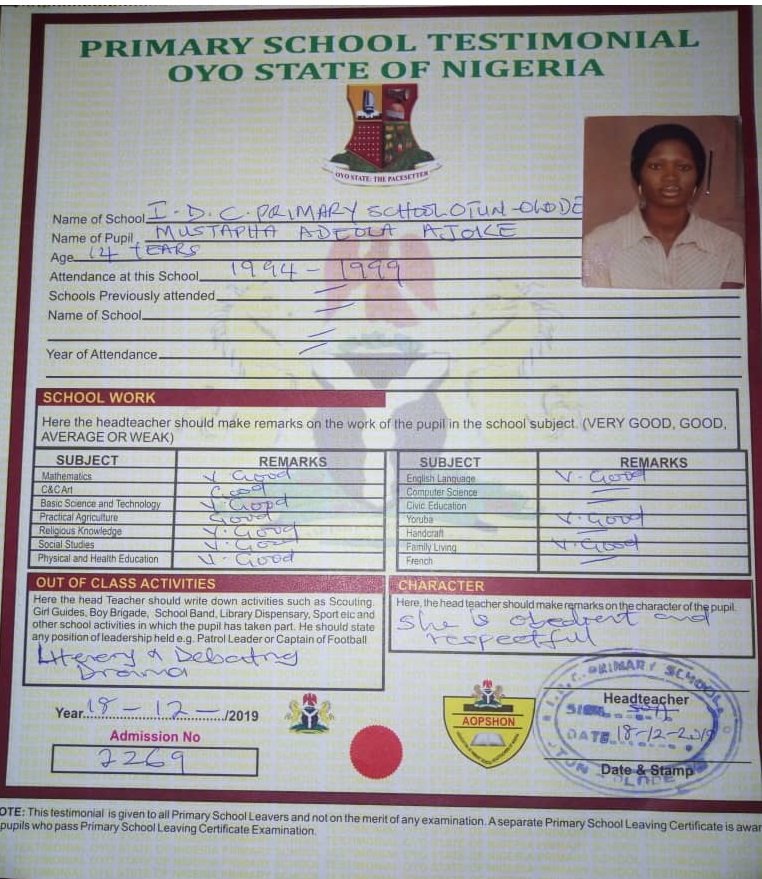 PRIMARY SCHOOL TESTIMONIAL
OYO STATE OF NIGERIA
OYO STATE: THE PACESETTER
Name of School I.D.C. PRIMARY SCHOOL OTUN-OLODE
Name of Pupil MUSTAPHA ADEOLA AJOKE
Age 14 YEARS
Attendance at this School 1994 - 1999
Schools Previously attended
Name of School
Year of Attendance
SCHOOL WORK
Here the headteacher should make remarks on the work of the pupil in the school subject. (VERY GOOD, GOOD,
AVERAGE OR WEAK)
SUBJECT REMARKS
Mathematics V. Good
C&C Art Good
Basic Science and Technology V. Good
Practical Agriculture Good
Religious Knowledge V. Good
Social Studies V. Good
Physical and Health Education V. Good
SUBJECT REMARKS
English Language V. Good
Computer Science
Civic Education
Yoruba V. Good
Handcraft
Family Living V. Good
French
OUT OF CLASS ACTIVITIES
Here the head Teacher should write down activities such as Scouting.
Girl Guides, Boy Brigade, School Band, Library Dispensary, Sport etc and
other school activities in which the pupil has taken part. He should state
any position of leadership held e.g. Patrol Leader or Captain of Football
Literary & Debating
Drama
CHARACTER
Here, the head teacher should make remarks on the character of the pupil.
She is obedient and
respectful
Year 18-12-/2019
Admission No
2269
AOPSHON
PRIMARY SCHOOL
Headteacher
SIGN
DATE 18-12-2019
Date & Stamp
OTE: This testimonial is given to all Primary School Leavers and not on the merit of any examination. A separate Primary School Leaving Certificate is awar
pupils who pass Primary School Leaving Certificate Examination.